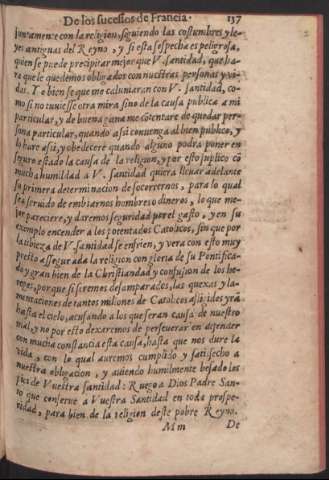 De los sucessos de Francia. 137
juntamente con la religion, siguiendo las costumbres y le-
yes antiguas del Reyno, y si esta sospecha es peligrosa,
quien se puede precipitar mejor que V. santidad, que ha-
rà que le quedemos obligados con nuestras personas y vi-
das. Y a bien se que me calumiaran con V. Santidad, co-
mo si no tuviesse otra mira sino de la causa publica a mi
particular, y de buena gana me cõtentare de quedar per-
sona particular, quando assi convenga al bien publico, y
lo harè assi, y obedecerè quando alguno podra poner en
seguro estado la causa de la religion, y por esto suplico cõ
mucha humildad a V. santidad quiera llevar adelante
su primera determinacion de socorrernos, para lo qual
sea servido de embiarnos hombres o dineros, lo que me-
jor pareciere, y daremos seguridad por el gasto, y en su
exemplo encender a los potentados Catolicos, sin que por
la tibieza de V. santidad se enfrien, y vera con esto muy
presto assegurada la religion con gloria de su Pontifica-
do y gran bien de la Christiandad y confusion de los he-
reges, porque si seremos desamparados, las quexas y la-
mentaciones de tantos millones de Catolicos afligides yrã
hasta el cielo, acusando a los que seran causa de nuestro
mal, y no por esto dexaremos de perseverar en defender
con mucha constancia esta causa, hasta que nos dure la
vida, con lo qual avremos cumplido y satisfecho a
nuestra obligacion, y aviendo humilmente besado los
pies de Vuestra santidad: Ruego a Dios Padre San-
to que conserve a Vuestra Santidad en toda prospe-
ridad, para bien de la religion deste pobre Reyno.
Mm De